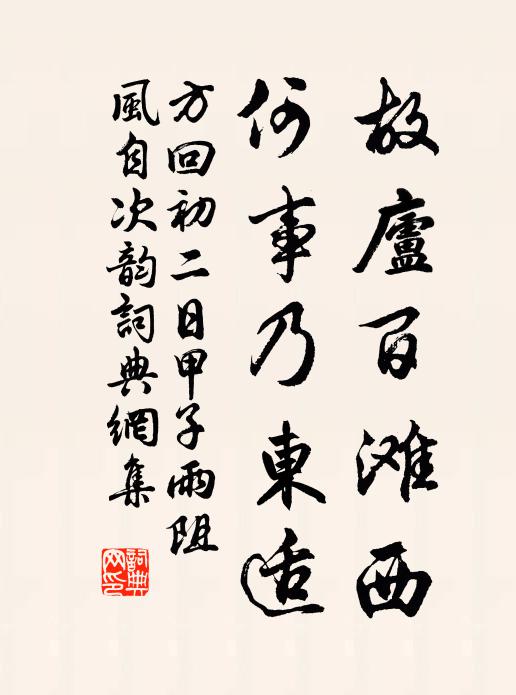 故廬百滩西
何事乃東适
方回初二日甲子雨阻
風自次韵詞典網集
詞典網印